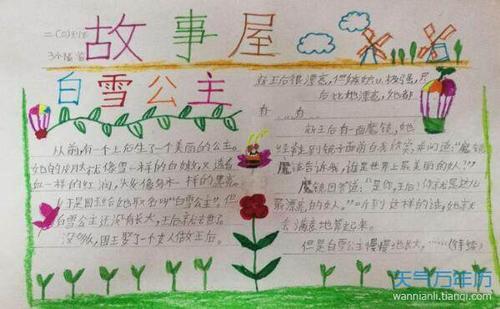 故事屋
白雪公主
从前,有一个王后生了一个美丽的公主。
她的皮肤就像雪一样的白嫩,又透着
血一样的红润,头发像乌木一样的黑亮。
于是国王给她取名叫"白雪公主",但
白雪公主还没有长大,王后就去世了
没多久,国王娶了一个女人做王后。
新王后很漂亮,但
后比她漂亮,她都
新王后有一面魔镜,她
经常走到镜子面前自我欣赏,并问道:"魔
魔镜告诉我,谁是世界上最美丽的女人?"
魔镜回答道:"是你,王后!你就是这儿
最漂亮的女人。"听到这样的话,她就
去满意地笑起来。
但是白雪公主慢慢地长大,……(待续)
天气万年历
wannianli.tianqi.com